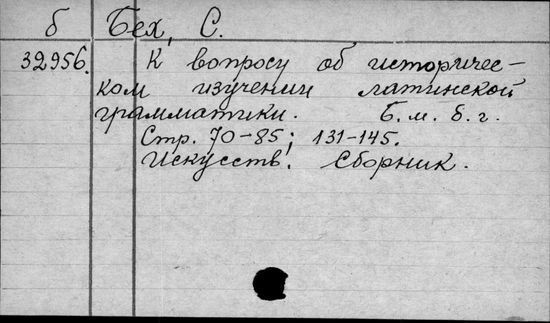 б Бех, С.
32956. К вопросу об историчес-
ком изучении латинской
грамматики. Б. м. б. г.
Стр. 70-85; 131-145.
Искусств. сборник.